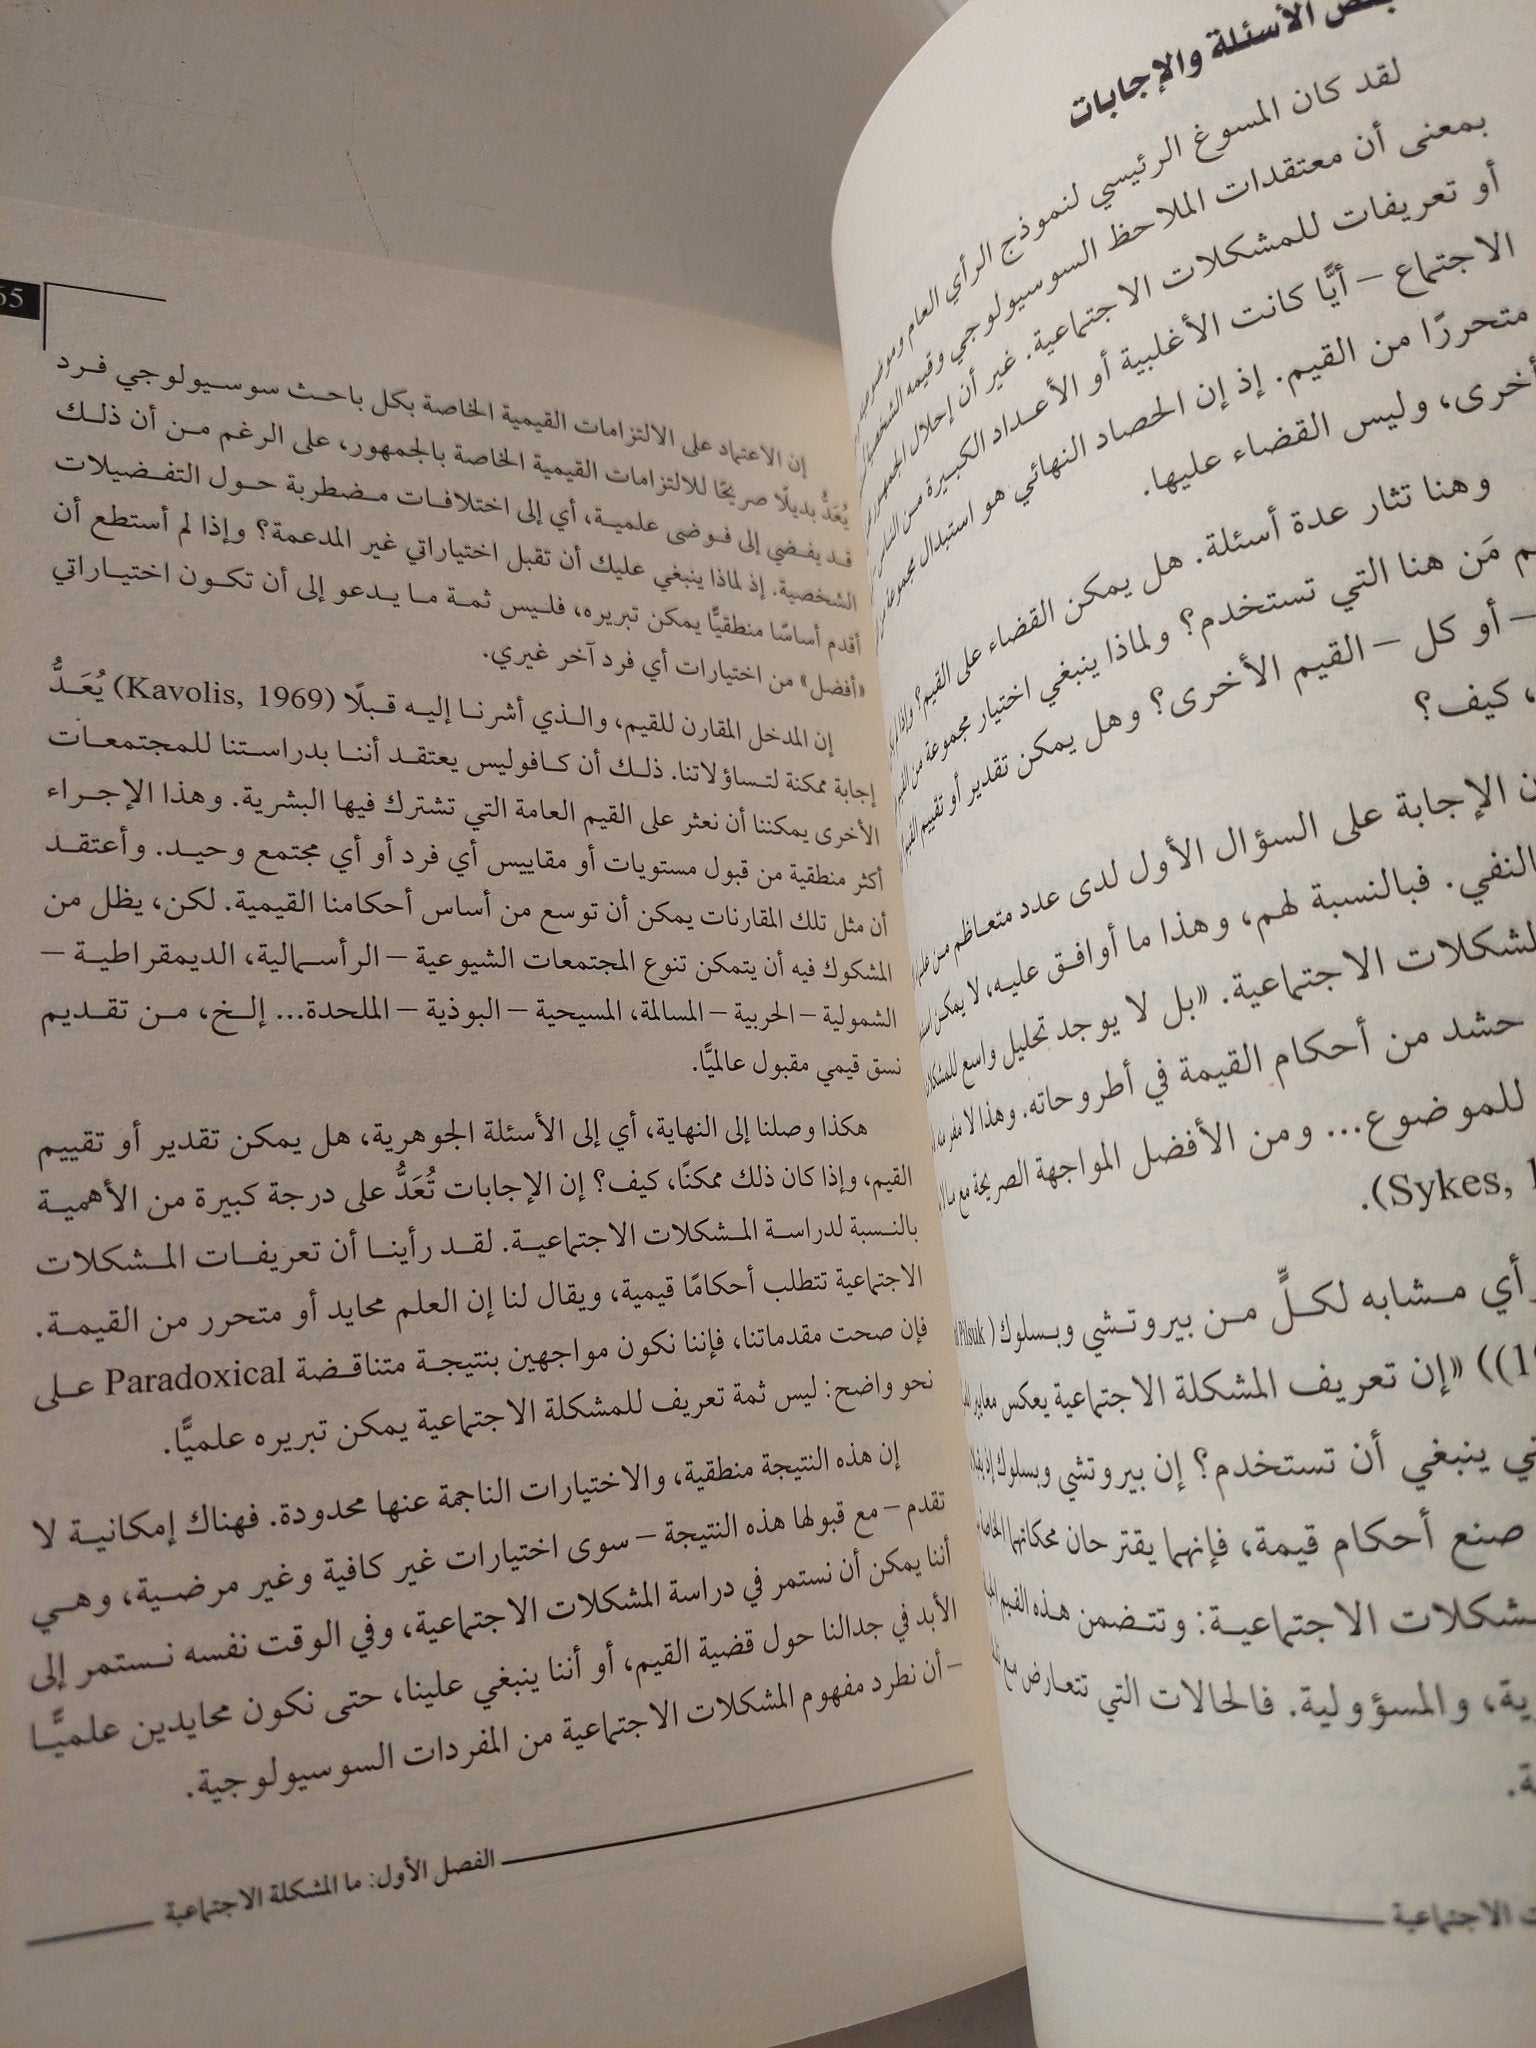 بعض الأسئلة والإجابات
لقد كان المسوغ الرئيسي لنموذج الرأي العام
بمعنى أن معتقدات الملاحظ السوسيولوجي وقيمه الشخصية
أو تعريفات للمشكلات الاجتماعية. غير أن إحلال الجمهور
الاجتماع – أيًّا كانت الأغلبية أو الأعداد الكبيرة من الناس
متحررًا من القيم. إذ إن الحصاد النهائي هو استبدال مجموعة
أخرى، وليس القضاء عليها.
وهنا تثار عدة أسئلة. هل يمكن القضاء على القيم؟
مَن هنا التي تستخدم؟ ولماذا ينبغي اختيار مجموعة من القيم
– أو كل – القيم الأخرى؟ وهل يمكن تقدير أو تقييم القيم
، كيف؟
الإجابة على السؤال الأول لدى عدد متعاظم من
النفي. فبالنسبة لهم، وهذا ما أوافق عليه، لا يمكن
الاجتماعية. «بل لا يوجد تحليل واسع
حشد من أحكام القيمة في أطروحاته. وهذا لا مفر منه
للموضوع... ومن الأفضل المواجهة الصريحة مع
(Sykes, 1
رأي مشابه لكلٍّ من بيروتشي وبسلوك (Pilsuk
)) «إن تعريف المشكلة الاجتماعية يعكس معايير
ينبغي أن تستخدم؟ إن بيروتشي وبسلوك
صنع أحكام قيمة، فإنهما يقترحان محكاتهما
الاجتماعية: وتتضمن هذه القيم
، والمسؤولية. فالحالات التي تتعارض مع
الاجتماعية
65
إن الاعتماد على الالتزامات القيمية الخاصة بكل باحث سوسيولوجي فرد
يُعَدُّ بديلًا صريحًا للالتزامات القيمية الخاصة بالجمهور، على الرغم من أن ذلك
قد يفضي إلى فوضى علمية، أي إلى اختلافات مضطربة حول التفضيلات
الشخصية. إذ لماذا ينبغي عليك أن تقبل اختياراتي غير المدعمة؟ وإذا لم أستطع أن
أقدم أساسًا منطقيًّا يمكن تبريره، فليس ثمة ما يدعو إلى أن تكون اختياراتي
«أفضل» من اختيارات أي فرد آخر غيري.
إن المدخل المقارن للقيم، والذي أشرنا إليه قبلًا (Kavolis, 1969) يُعَدُّ
إجابة ممكنة لتساؤلاتنا. ذلك أن كافوليس يعتقد أننا بدراستنا للمجتمعات
الأخرى يمكننا أن نعثر على القيم العامة التي تشترك فيها البشرية. وهذا الإجراء
أكثر منطقية من قبول مستويات أو مقاييس أي فرد أو أي مجتمع وحيد. وأعتقد
أن مثل تلك المقارنات يمكن أن توسع من أساس أحكامنا القيمية. لكن، يظل من
المشكوك فيه أن يتمكن تنوع المجتمعات الشيوعية – الرأسمالية، الديمقراطية –
الشمولية – الحربية – المسالمة، المسيحية – البوذية – الملحدة... إلخ، من تقديم
نسق قيمي مقبول عالميًّا.
هكذا وصلنا إلى النهاية، أي إلى الأسئلة الجوهرية، هل يمكن تقدير أو تقييم
القيم، وإذا كان ذلك ممكنًا، كيف؟ إن الإجابات تُعَدُّ على درجة كبيرة من الأهمية
بالنسبة لدراسة المشكلات الاجتماعية. لقد رأينا أن تعريفات المشكلات
الاجتماعية تتطلب أحكامًا قيمية، ويقال لنا إن العلم محايد أو متحرر من القيمة.
فإن صحت مقدماتنا، فإننا نكون مواجهين بنتيجة متناقضة Paradoxical على
نحو واضح: ليس ثمة تعريف للمشكلة الاجتماعية يمكن تبريره علميًّا.
إن هذه النتيجة منطقية، والاختيارات الناجمة عنها محدودة. فهناك إمكانية لا
تقدم – مع قبولها هذه النتيجة – سوى اختيارات غير كافية وغير مرضية، وهي
أننا يمكن أن نستمر في دراسة المشكلات الاجتماعية، وفي الوقت نفسه نستمر إلى
الأبد في جدالنا حول قضية القيم، أو أننا ينبغي علينا، حتى نكون محايدين علميًّا
– أن نطرد مفهوم المشكلات الاجتماعية من المفردات السوسيولوجية.
الفصل الأول: ما المشكلة الاجتماعية